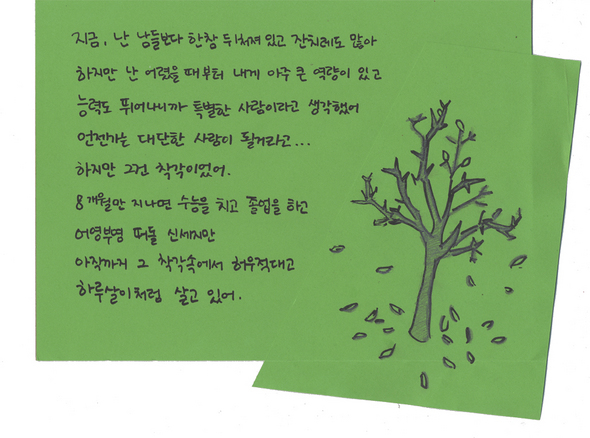 지금, 난 남들보다 한참 뒤쳐져 있고 잔치레도 많아
하지만 난 어렸을 때부터 내게 아주 큰 역량이 있고
능력도 뛰어나니까 특별한 사람이라고 생각했어
언젠가는 대단한 사람이 될거라고...
하지만 그건 착각이었어.
8개월만 지나면 수능을 치고 졸업을 하고
어영부영 떠돌 신세지만
아직까지 그 착각속에서 허우적대고
하루살이처럼 살고 있어.